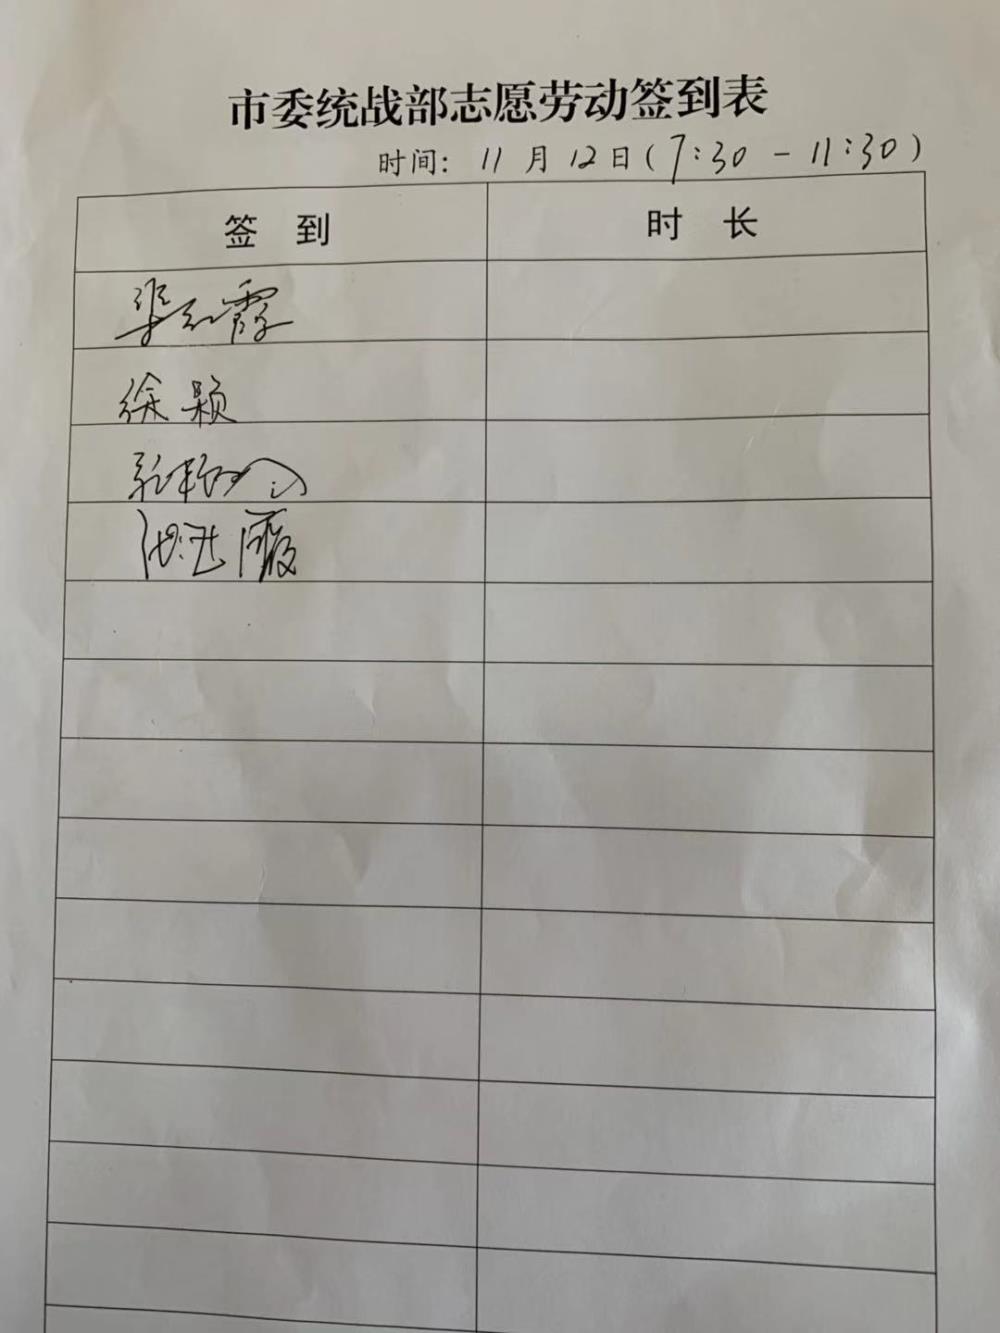 市委统战部志愿劳动签到表
时间：11月12日(7:30-11:30)
签 到 时 长
渠红霞
徐颖